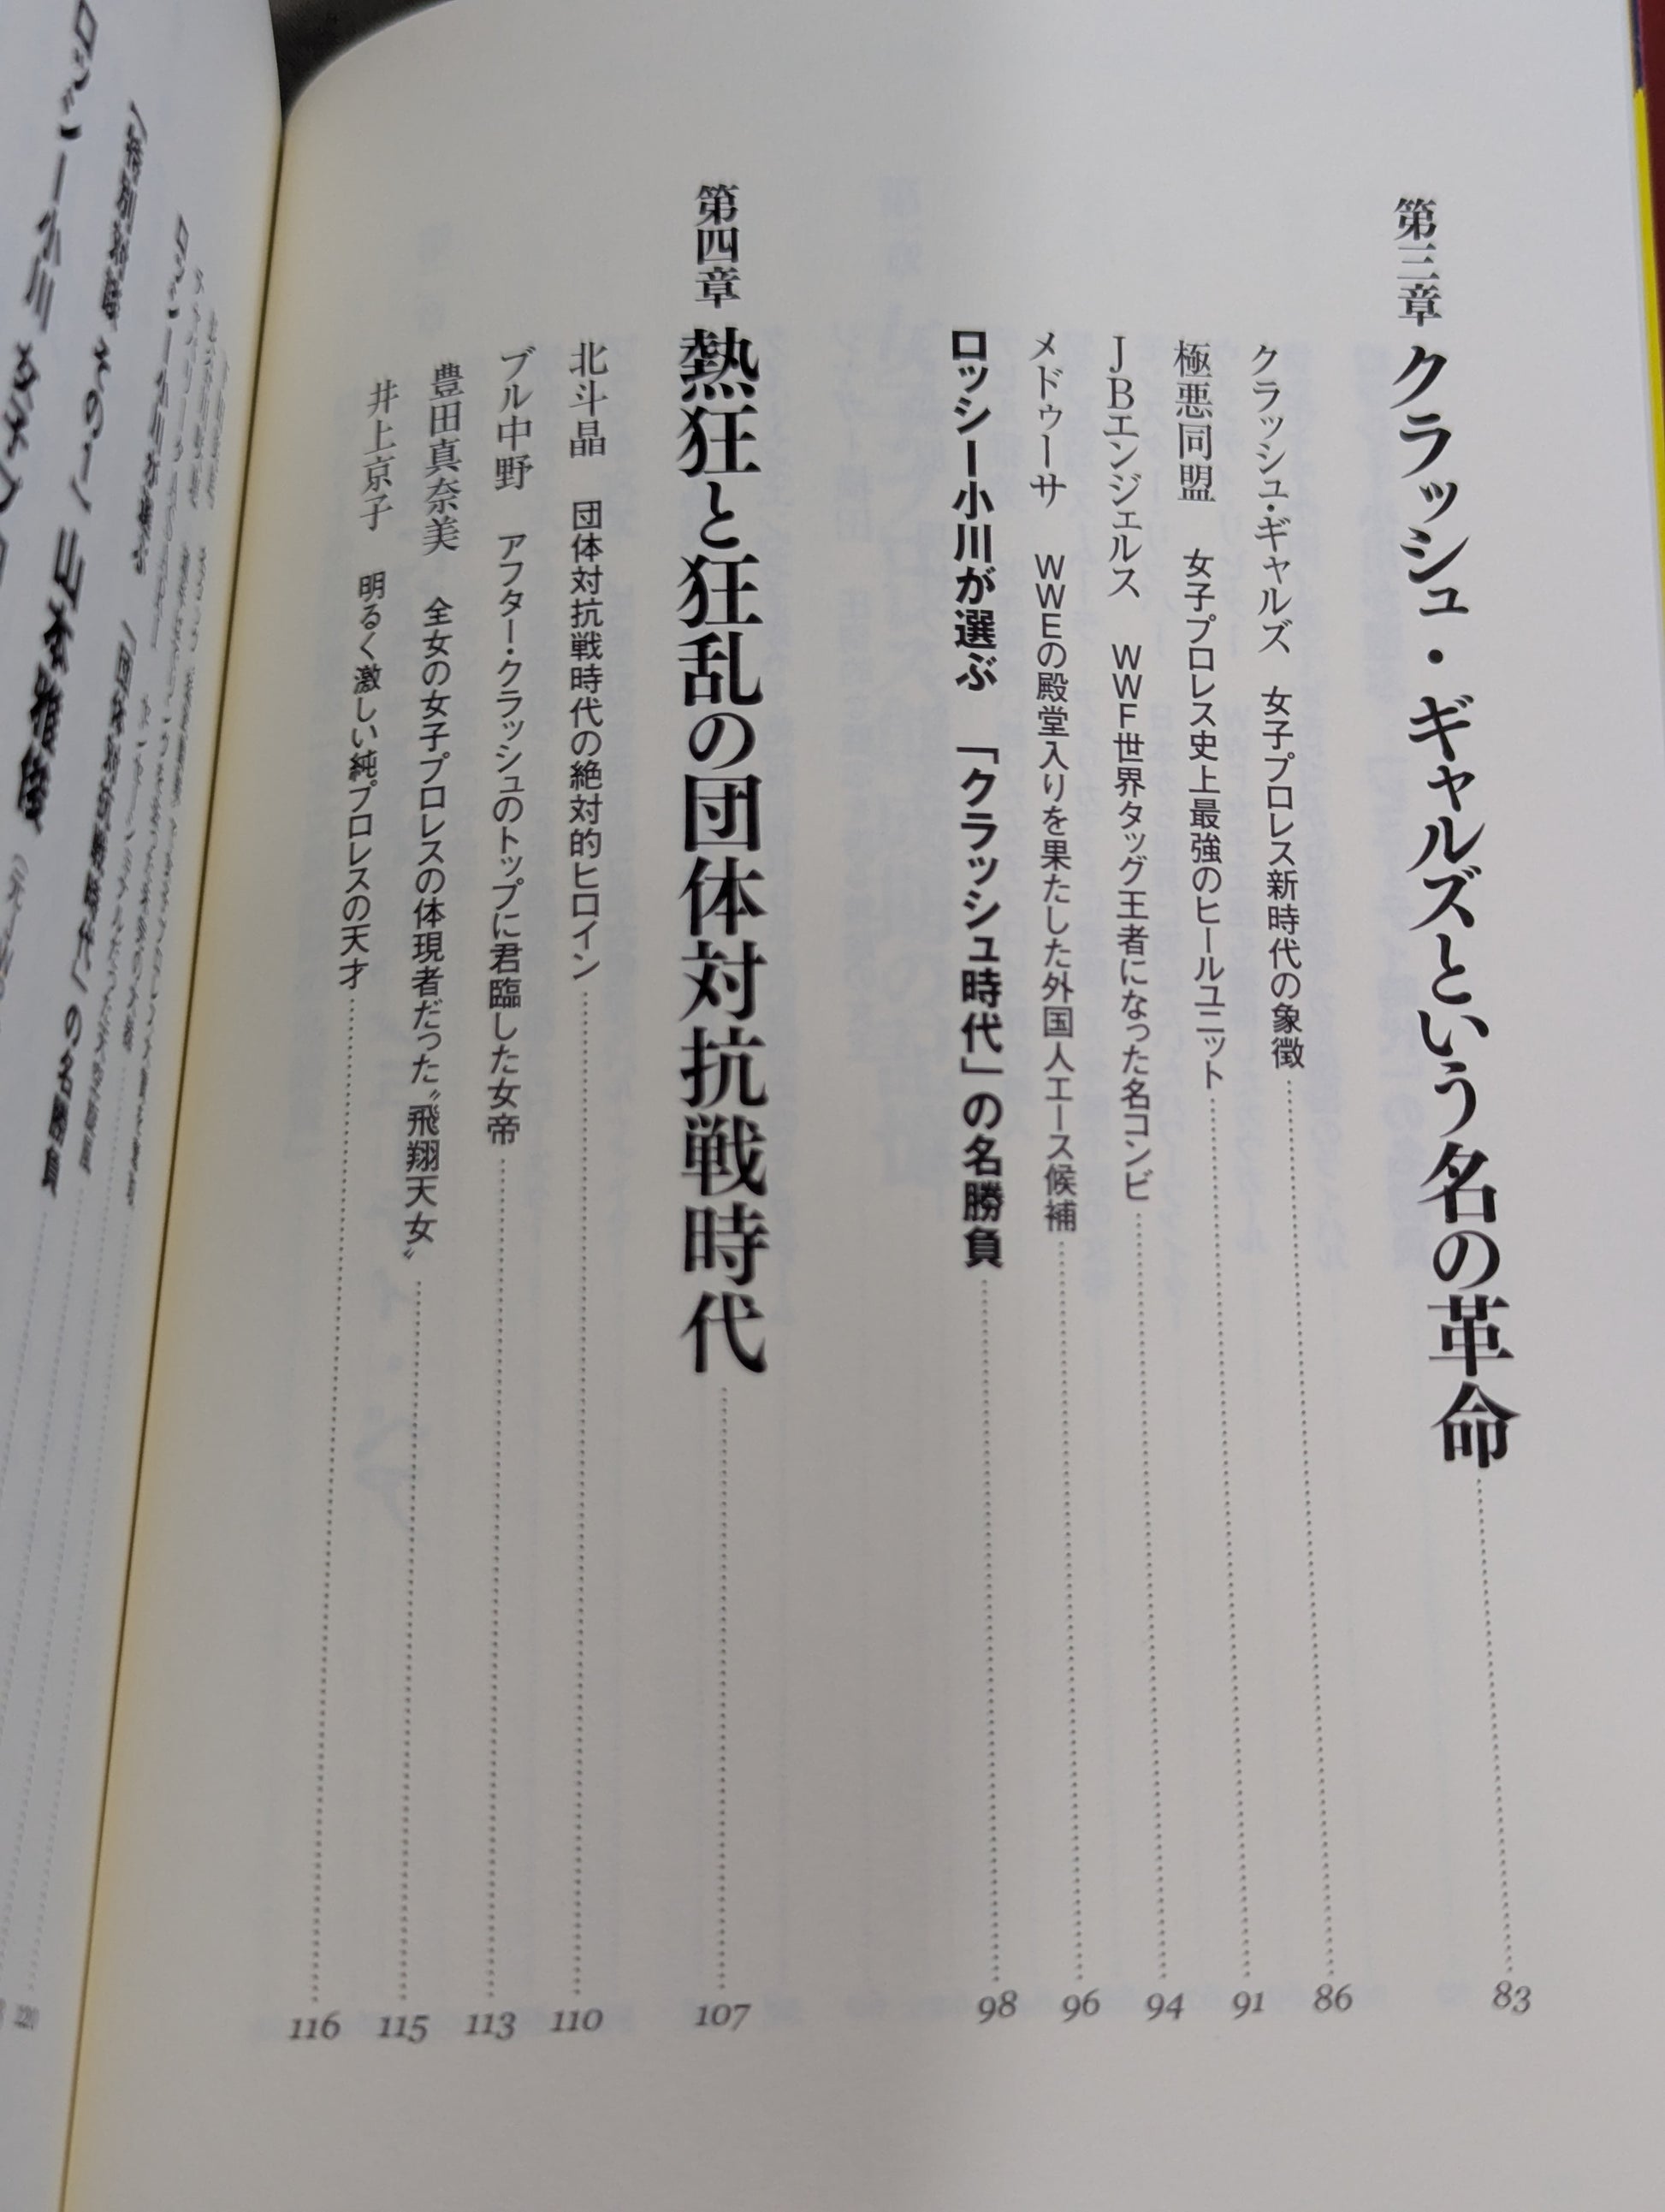 第三章 クラッシュ・ギャルズという名の革命 83
クラッシュ・ギャルズ 女子プロレス新時代の象徴 86
極悪同盟 女子プロレス史上最強のヒールユニット 91
JBエンジェルス WWF世界タッグ王者になった名コンビ 94
メドゥーサ WWEの殿堂入りを果たした外国人エース候補 96
ロッシー小川が選ぶ 「クラッシュ時代」の名勝負 98
第四章 熱狂と狂乱の団体対抗戦時代 107
北斗晶 団体対抗戦時代の絶対的ヒロイン 110
ブル中野 アフター・クラッシュのトップに君臨した女帝 113
豊田真奈美 全女の女子プロレスの体現者だった〝飛翔天女〟 115
井上京子 明るく激しい純プロレスの天才 116
ロッシー小川が選ぶ 「団体対抗戦時代」の名勝負
〈特別対談 その一〉 山本雅俊
ロッシー小川
220